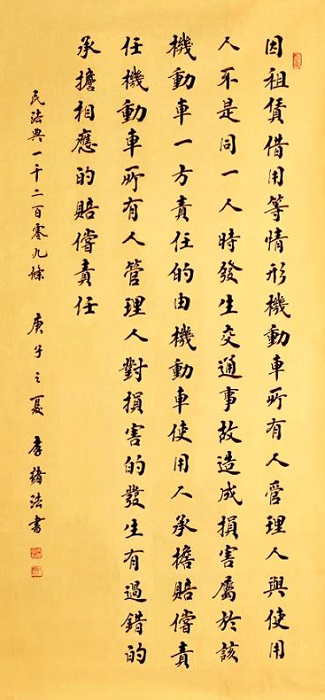 因租賃借用等情形機動車所有人管理人與使用
人不是同一人時發生交通事故造成損害屬於該
機動車一方責任的由機動車使用人承擔賠償責
任機動車所有人管理人對損害的發生有過錯的
承擔相應的賠償責任
民法典一千二百零九條 庚子之夏 李緒法書